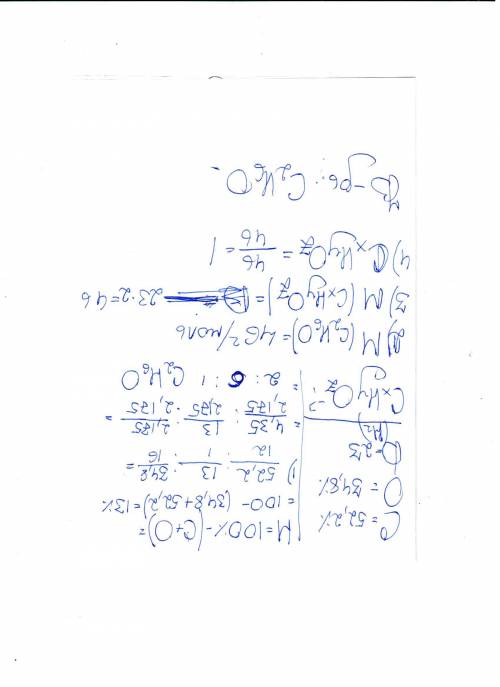 C = 52,2%
O = 34,8%
D(H₂) = 23
CxHyOz - ?
H = 100% - (C+O) =
= 100 - (34,8 + 52,2) = 13%
1) 52,2/12 : 13/1 : 34,8/16 =
= 4,35/2,175 : 13/2,175 : 2,175/2,175 =
= 2 : 6 : 1 C₂H₆O
2) M(C₂H₆O) = 46 г/моль
3) M(CxHyOz) = 23·2 = 46
4) CxHyOz = 46/46 = 1
C₂H₆O